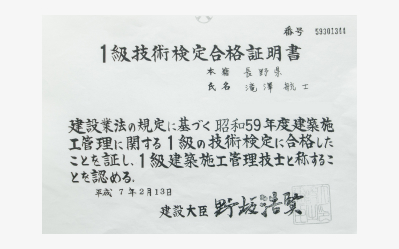 番号 59301344
1級技術検定合格証明書
本籍 長野県
氏名 滝澤 航士
建設業法の規定に基づく昭和59年度建築施
工管理に関する1級の技術検定に合格した
ことを証し、1級建築施工管理技士と称するこ
とを認める.
平成 7年2月13日
建設大臣 野坂浩賢